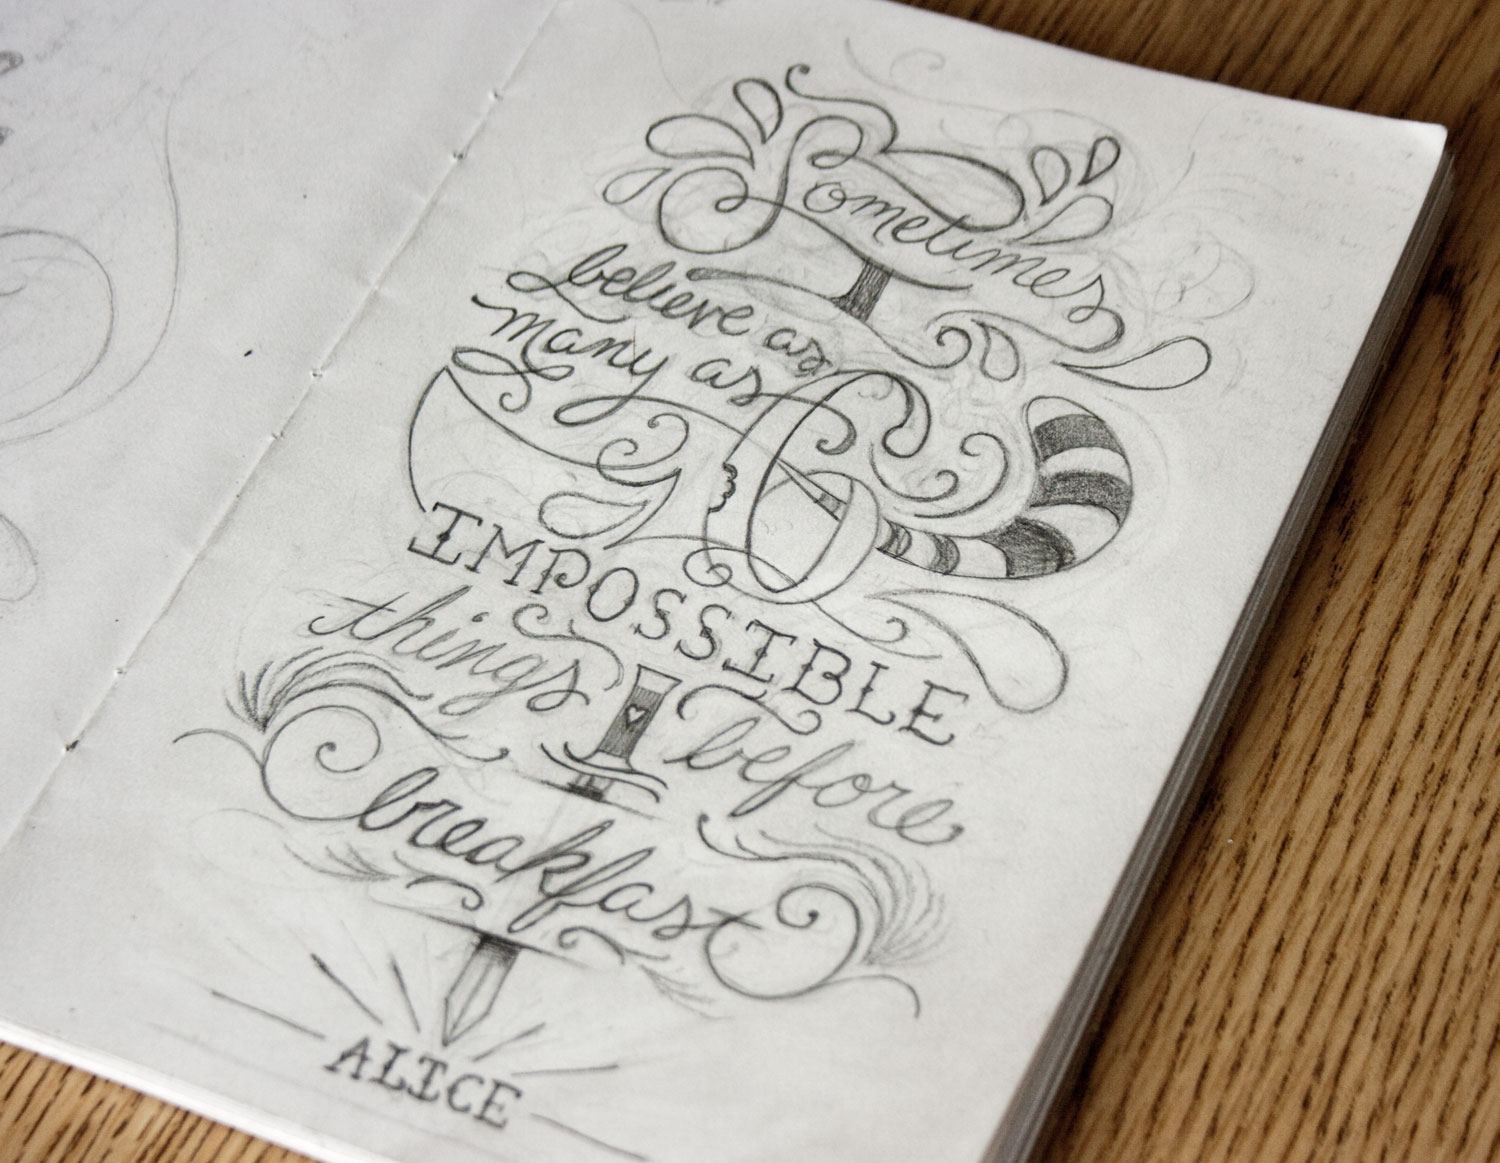 Sometimes
I
believe as
many as 6
IMPOSSIBLE
things before
breakfast
ALICE